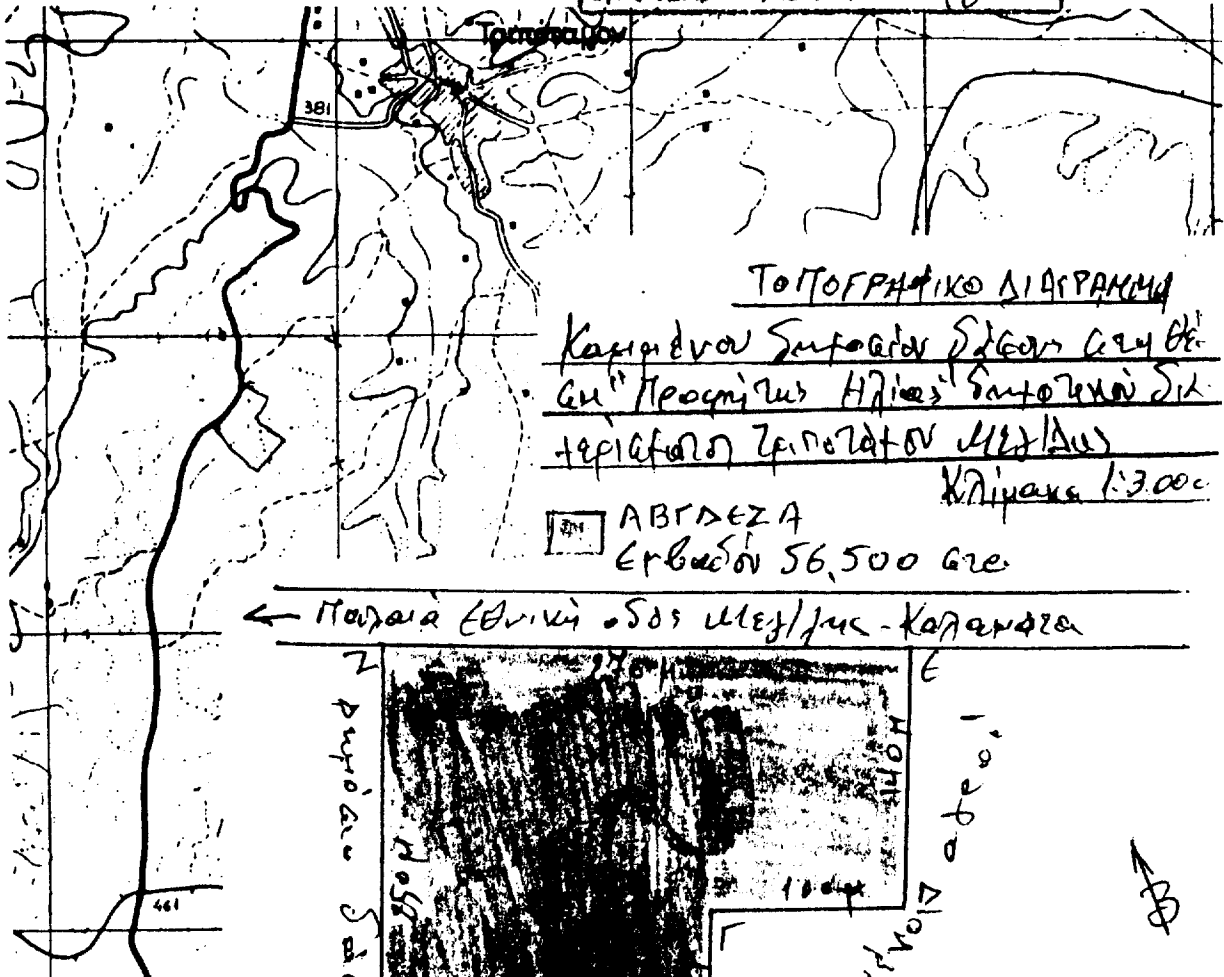 Τριπόταμον
381
ΤΟΠΟΓΡΑΦΙΚΟ ΔΙΑΓΡΑΜΜΑ
Καμμένου δημοσίου δάσους στη θέ-
ση "Προφήτης Ηλίας" δημοτικού δια
μερίσματος Τριποτάμου Μεγ/λης
Κλίμακα 1:3.00
ΑΒΓΔΕΖΑ
Εμβαδόν 56,500 στρ.
← Παλαιά Εθνική οδός Μεγ/λης - Καλαμάτα
Ζ
270 Μ
Ε
140 Μ
αγροί
250 Μ
100 Μ
Γ
Δ
461
Β